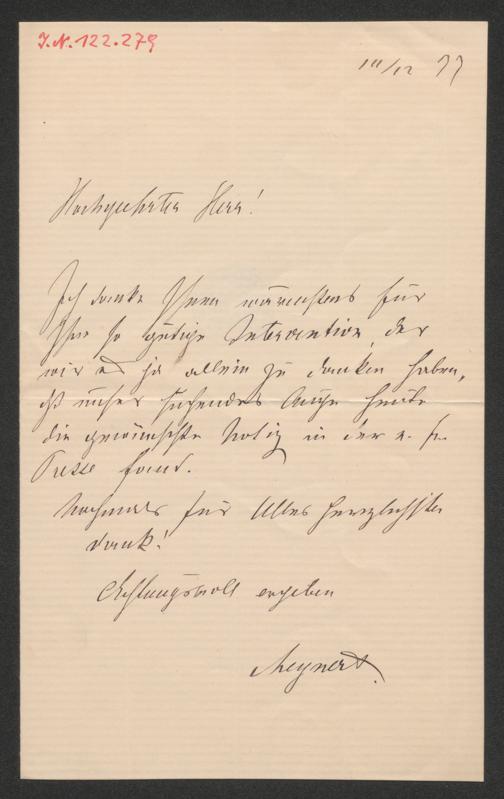 J.N. 122.279
10/12 77
Hochgeehrter Herr!
Ich danke Ihnen wärmstens für
Ihre so gütige Intervention, der
wir es ja allein zu danken haben,
daß unser suchendes Auge heute
die gewünschte Notiz in der n. fr.
Presse fand.
Nochmals für Alles herzlichsten
Dank!
Achtungsvoll ergeben
Meynert.